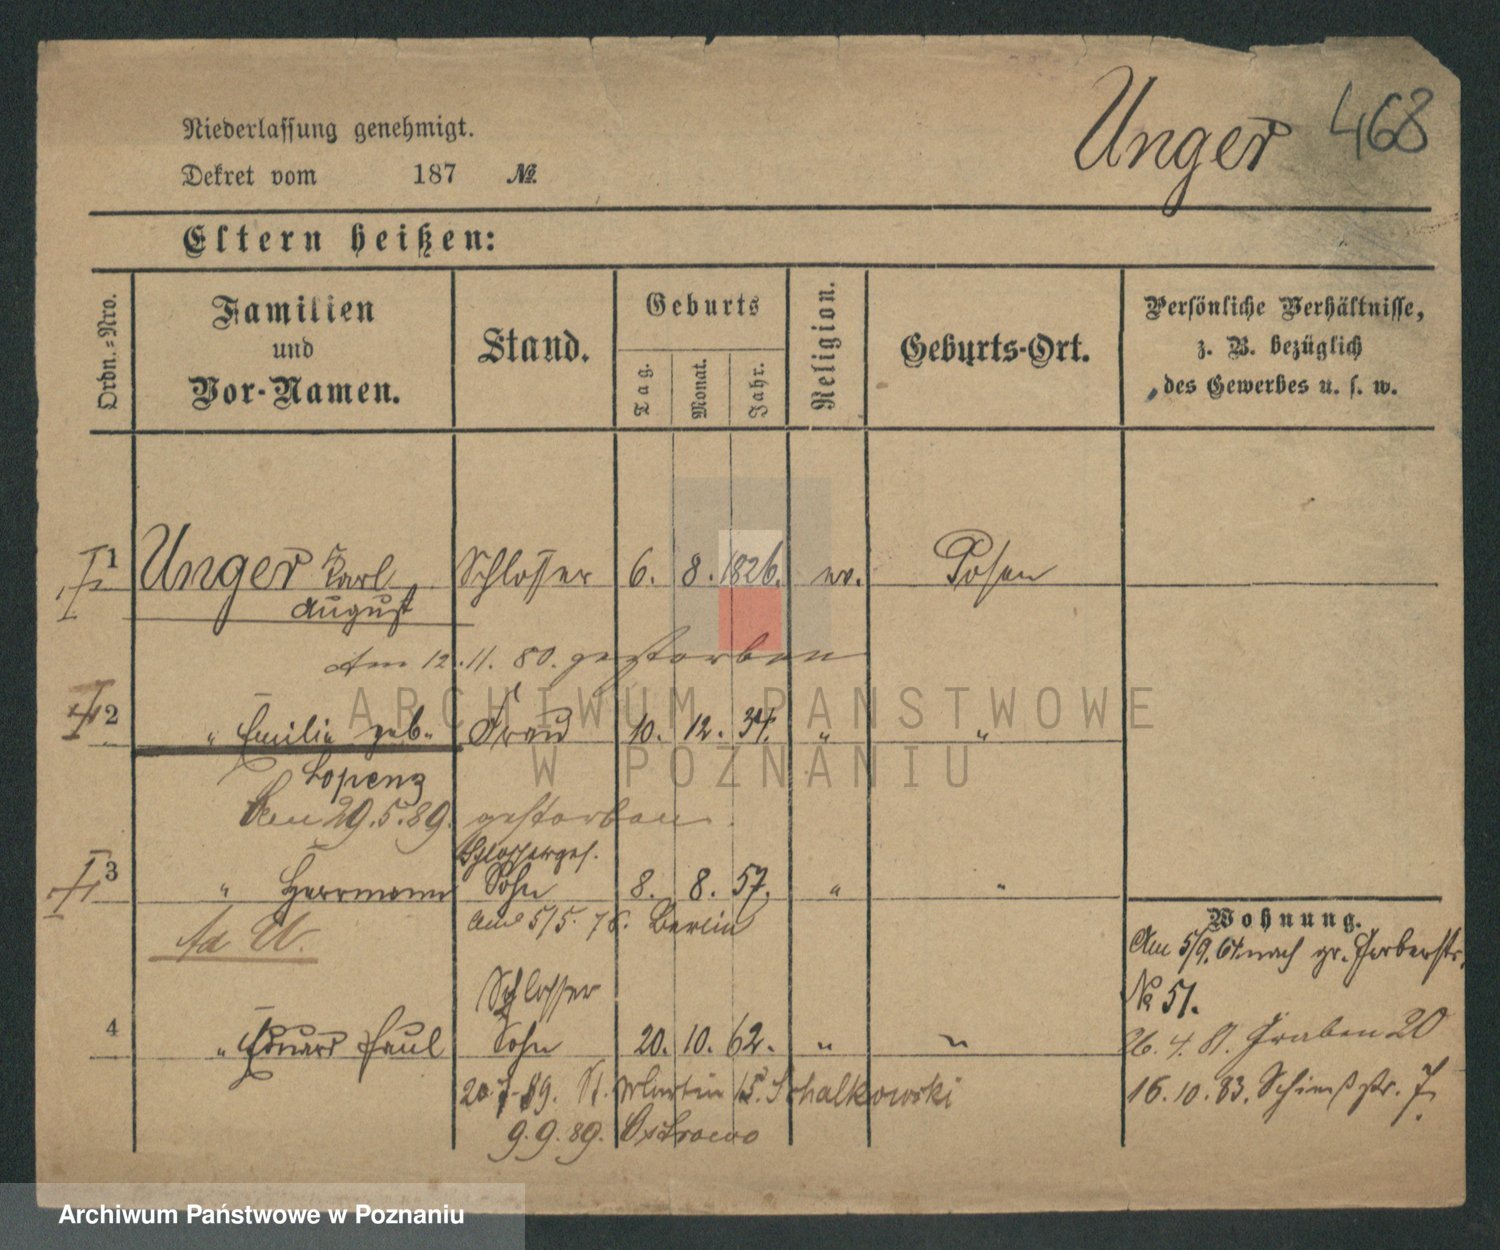 Unger 468
Niederlassung genehmigt.
Dekret vom 187 №
Eltern heißen:
Ordn.-Nro.
Familien
und
Vor-Namen.
Stand.
Geburts
Tag.
Monat.
Jahr.
Religion.
Geburts-Ort.
Persönliche Verhältnisse,
z. B. bezüglich
des Gewerbes u. s. w.
1 Unger Karl Schlosser 6. 8. 1826. ev. Posen
August
Am 12.11.80. gestorben
2 " Emilie geb. Frau 10. 12. 34. " "
Den 29.5.89. gestorben
Schlosserges.
3 " Herrmann Sohn 8. 8. 57. " "
5/5. 76. Berlin
Schlosser
4 " Eduard Paul Sohn 20. 10. 62. " "
20.7.89. St. Martin 15. Schalkowski
9.9.89. Ostrowo
Wohnung.
Am 5/9. 64. nach gr. Gerberstr.
№ 51.
26.4.81. Graben 20
16.10.83. Schießstr. 7.
ARCHIWUM PAŃSTWOWE
W POZNANIU
Archiwum Państwowe w Poznaniu